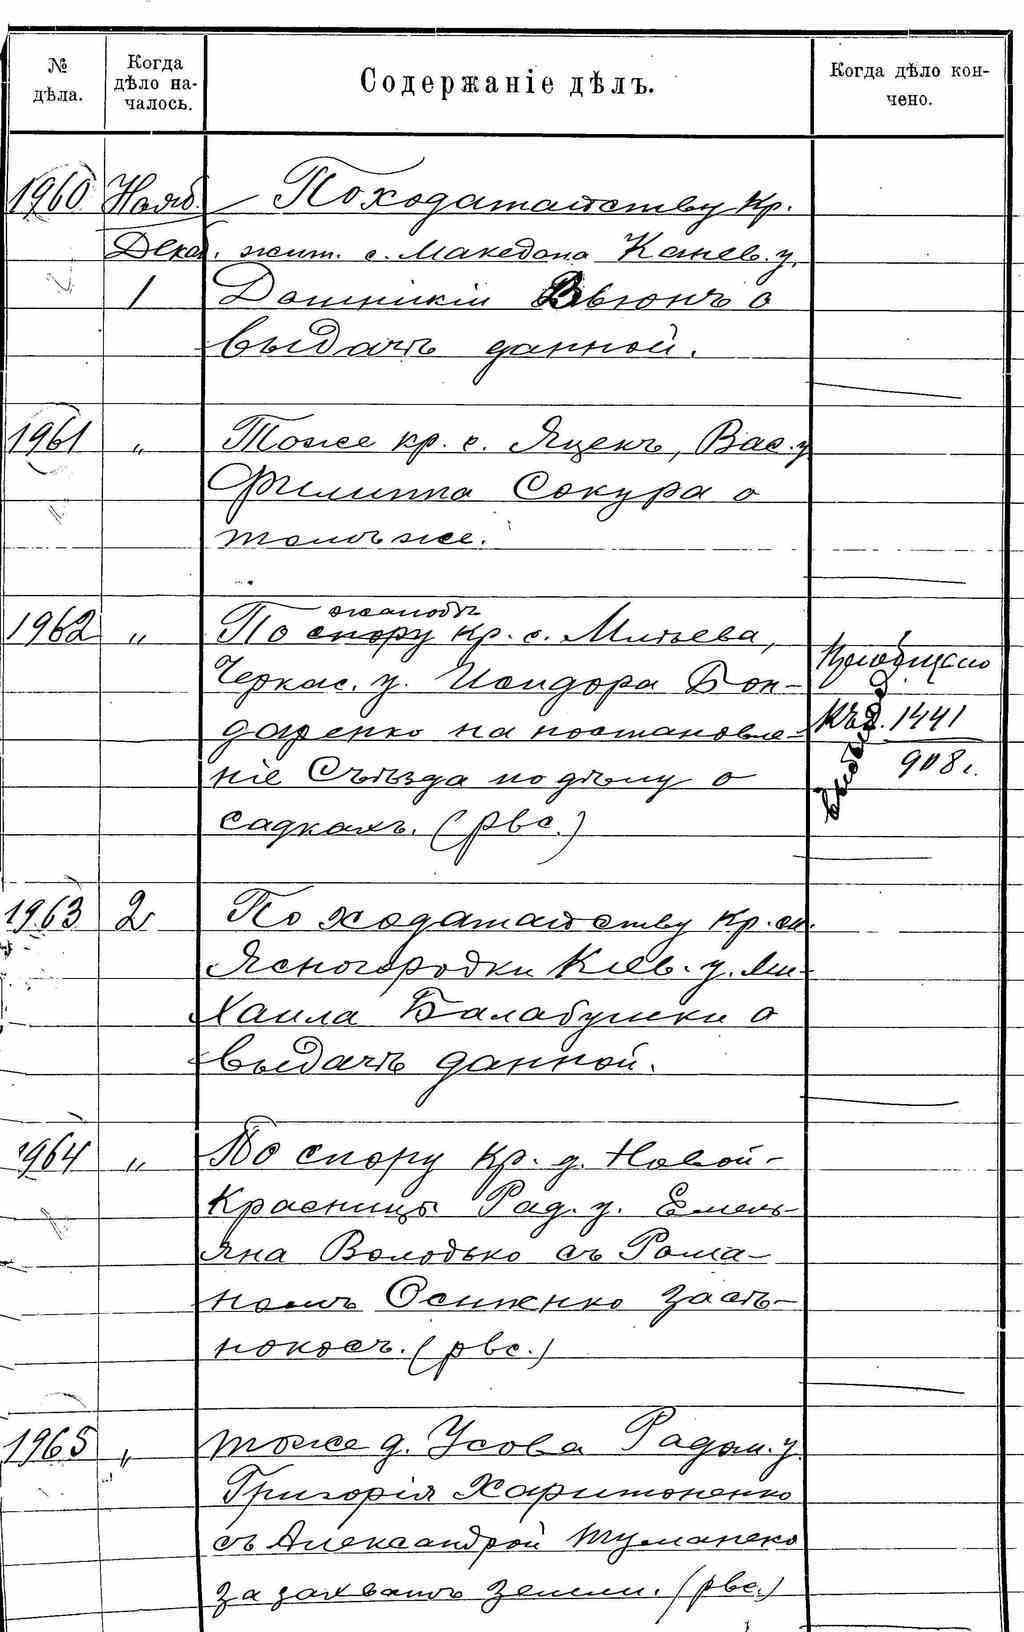 № дѣла.
Когда дѣло началось.
Содержаніе дѣлъ.
Когда дѣло кончено.
1960 Нояб. По ходатайству кр.
Декаб. жит. с. Македона Канев. у.
1 Вьюнъ о
выдачѣ данной.
1961 „ Тоже кр. с. Яценъ, Вас. у.
Филиппа Сокура о
томъ же.
жалобѣ
1962 „ По спору кр. с. Млѣева,
Черкас. у. Исидора Бон-
даренко на постановле-
ніе Съѣзда по дѣлу о
садкахъ. (рвс.)
Пріобщено
къ д. 1441
908 г.
1963 2 По ходатайству кр. м.
Ясногородки Кіев. у. Ми-
хаила Балабушки о
выдачѣ данной.
1964 „ По спору кр. д. Новой-
Красницы Рад. у. Емель-
яна Володько съ Рома-
номъ Осипенко за сѣ-
нокосъ. (рвс.)
1965 „ тоже д. Усова Радом. у.
Григорія Харитоненко
съ Александрой Туманенко
за захватъ земли. (рвс.)